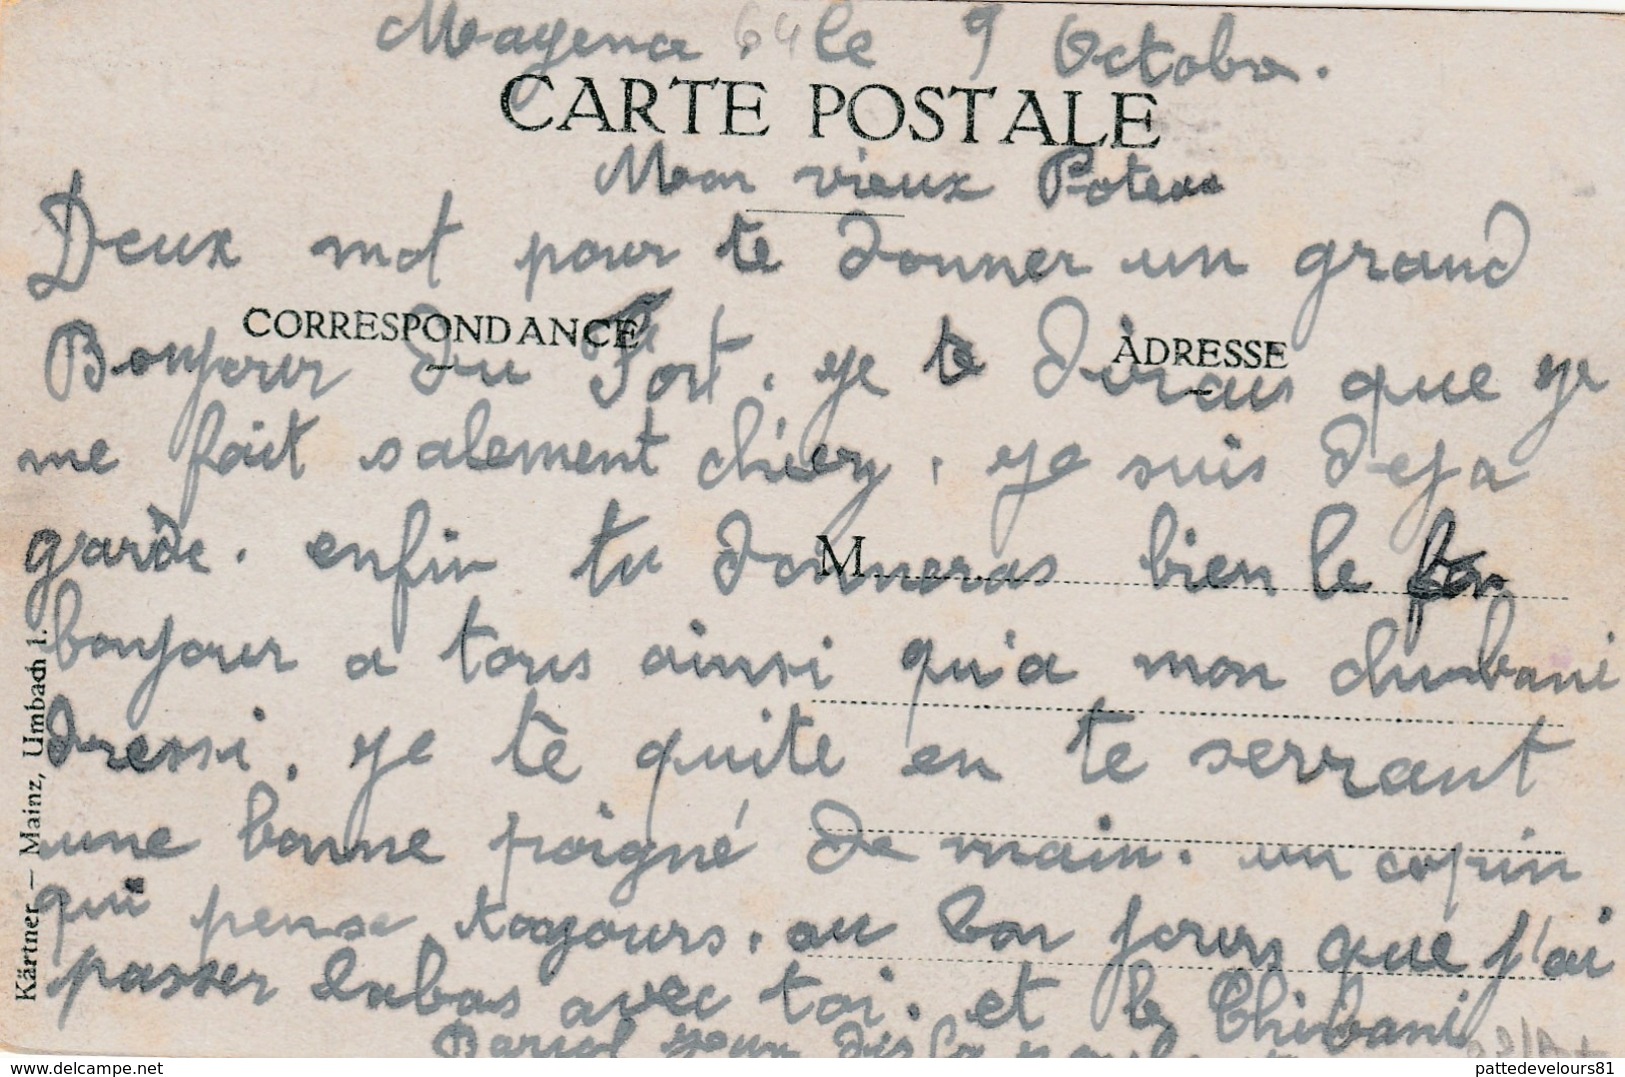 Mayence 64 le 9 Octobre.
CARTE POSTALE
Mon vieux Poteau
Deux mot pour te donner un grand
CORRESPONDANCE
ADRESSE
Bonjour du Fort. je te dirais que je
me fait salement chier, je suis deja
garde. enfin tu donneras bien le bon
M
bonjour a tous ainsi qu'a mon chibani
dressi. je te quite en te serrant
une bonne poigné de main. un copin
qui pense toujours. au bon jours que j'ai
passer labas avec toi. et le Chibani
Kärtner — Mainz, Umbach 1.
delcampe.net
pattedevelours81